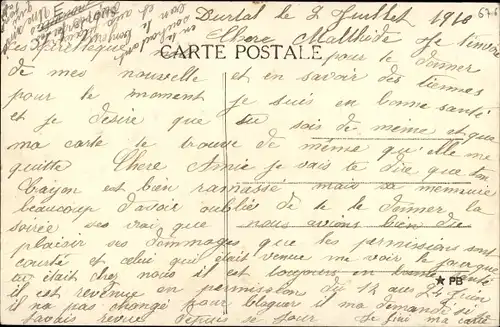 Durtal le 2 Juillet 1910
Chere Mathilde Je t'envoie
CARTE POSTALE
pour te donner
de mes nouvelle et en savoir des tiennes
pour le moment je suis en bonne santé
et je desire que tu sois de même et que
ma carte te trouve de même qu'elle me
quitte Chere Amie je vais te dire que ton
est bien ramassé mais sa memoire
beaucoup d'avoir oublié de te le donner la
soirée ses vrai que nous avions bien du
plaisir ses dommages que les permissions sont
courte et celui qui était venue me voir le jour que
tu était chez nous il est toujours en bonne santé
★ PB
il est revenue en permission du 12 au 24 Juin
il na pas changé pour blaguer il ma demandé si
javais revue depuis se jour Je fini ma carte